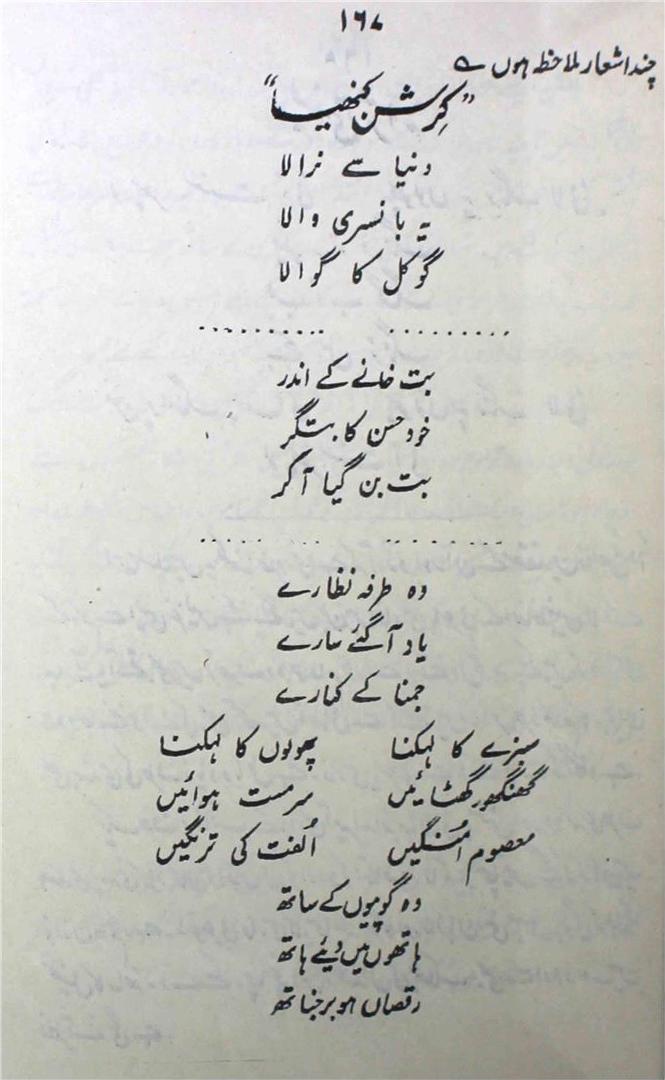 ۱۶۷
چند اشعار ملاحظہ ہوں ؎
"کرشن کنھیا"
دنیا سے نرالا
یہ بانسری والا
گوکل کا گوالا
........... ..........
بت خانے کے اندر
خود حسن کا بتگر
بت بن گیا آ کر
........... ..........
وہ طرفہ نظارے
یاد آ گئے سارے
جمنا کے کنارے
سبزے کا لہکنا پھولوں کا لہکنا
گھنگھور گھٹائیں سرمست ہوائیں
معصوم امنگیں اُلفت کی ترنگیں
وہ گوپیوں کے ساتھ
ہاتھوں میں دیئے ہاتھ
رقصاں ہو برجناتھ